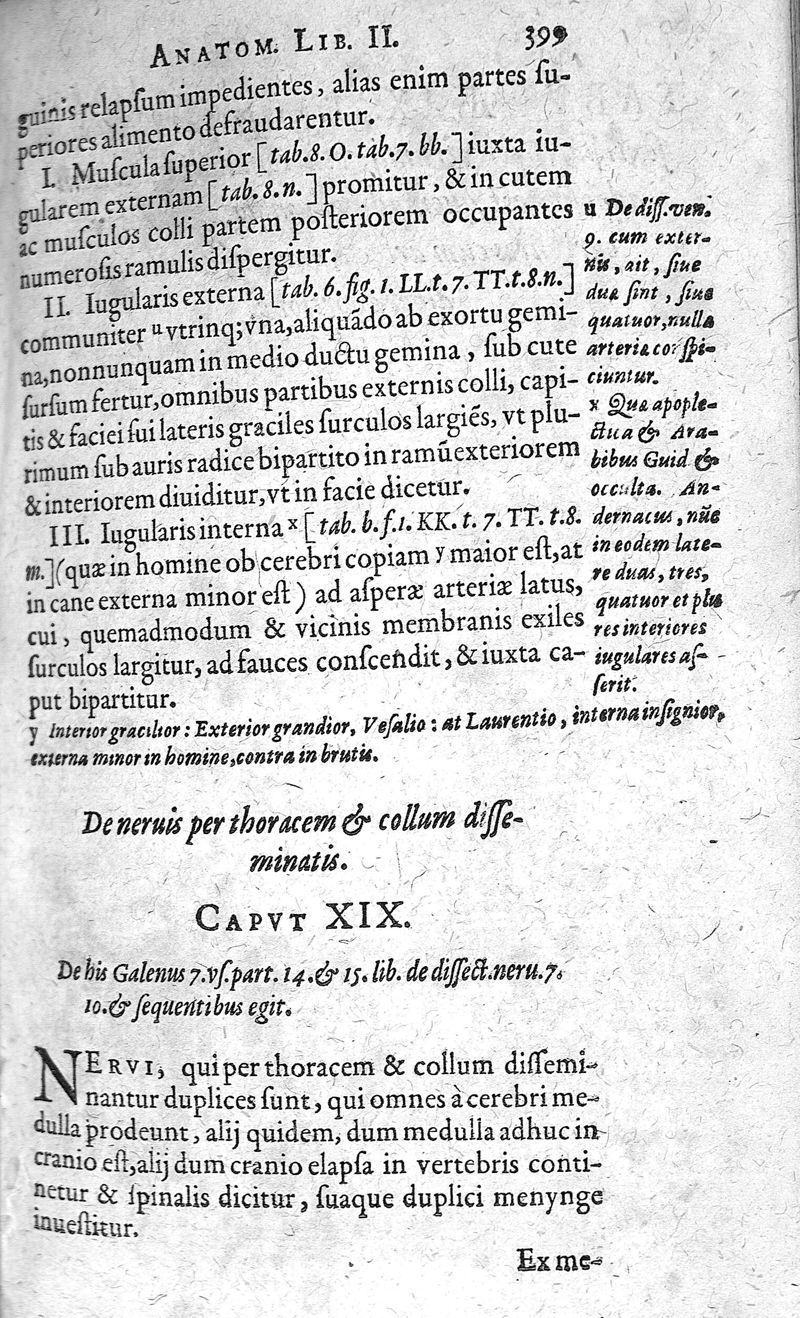 ANATOM. LIB. II. 399
guinis relapſum impedientes, alias enim partes ſu-
periores alimento defraudarentur.
I. Muſcula ſuperior [tab. 8. O. tab. 7. bb.] iuxta iu-
gularem externam [tab. 8. n.] promitur, & in cutem
ac muſculos colli partem poſteriorem occupantes
numeroſis ramulis diſpergitur.
II. Iugularis externa [tab. 6. fig. 1. LL. t. 7. TT. t. 8. n.]
communiter u vtrinq; vna, aliquãdo ab exortu gemi-
na, nonnunquam in medio ductu gemina, ſub cute
ſurſum fertur, omnibus partibus externis colli, capi-
tis & faciei ſui lateris graciles ſurculos largiẽs, vt plu-
rimum ſub auris radice bipartito in ramũ exteriorem
& interiorem diuiditur, vt in facie dicetur.
III. Iugularis interna x [tab. b. f. 1. KK. t. 7. TT. t. 8.
m.] (quæ in homine ob cerebri copiam y maior eſt, at
in cane externa minor eſt) ad aſperæ arteriæ latus,
cui, quemadmodum & vicinis membranis exiles
ſurculos largitur, ad fauces conſcendit, & iuxta ca-
put bipartitur.
u De diſſ. ven.
9. cum exter-
nis, ait, ſiue
duæ ſint, ſiue
quatuor, nulla
arteria coſpi-
ciuntur.
x Quæ apople-
ctica & Ara-
bibus Guid &
occulta. An-
dernacus, nũc
in eodem late-
re duas, tres,
quatuor et plu
res interiores
iugulares aſ-
ſerit.
y Interior gracilior: Exterior grandior, Veſalio: at Laurentio, interna inſignior,
externa minor in homine, contra in brutis.
De neruis per thoracem & collum diſſe-
minatis.
CAPVT XIX.
De his Galenus 7. vſ. part. 14. & 15. lib. de diſſect. neru. 7.
10. & ſequentibus egit.
NERVI, qui per thoracem & collum diſſemi-
nantur duplices ſunt, qui omnes à cerebri me-
dulla prodeunt, alij quidem, dum medulla adhuc in
cranio eſt, alij dum cranio elapſa in vertebris conti-
netur & ſpinalis dicitur, ſuaque duplici menynge
inueſtitur.
Ex me-